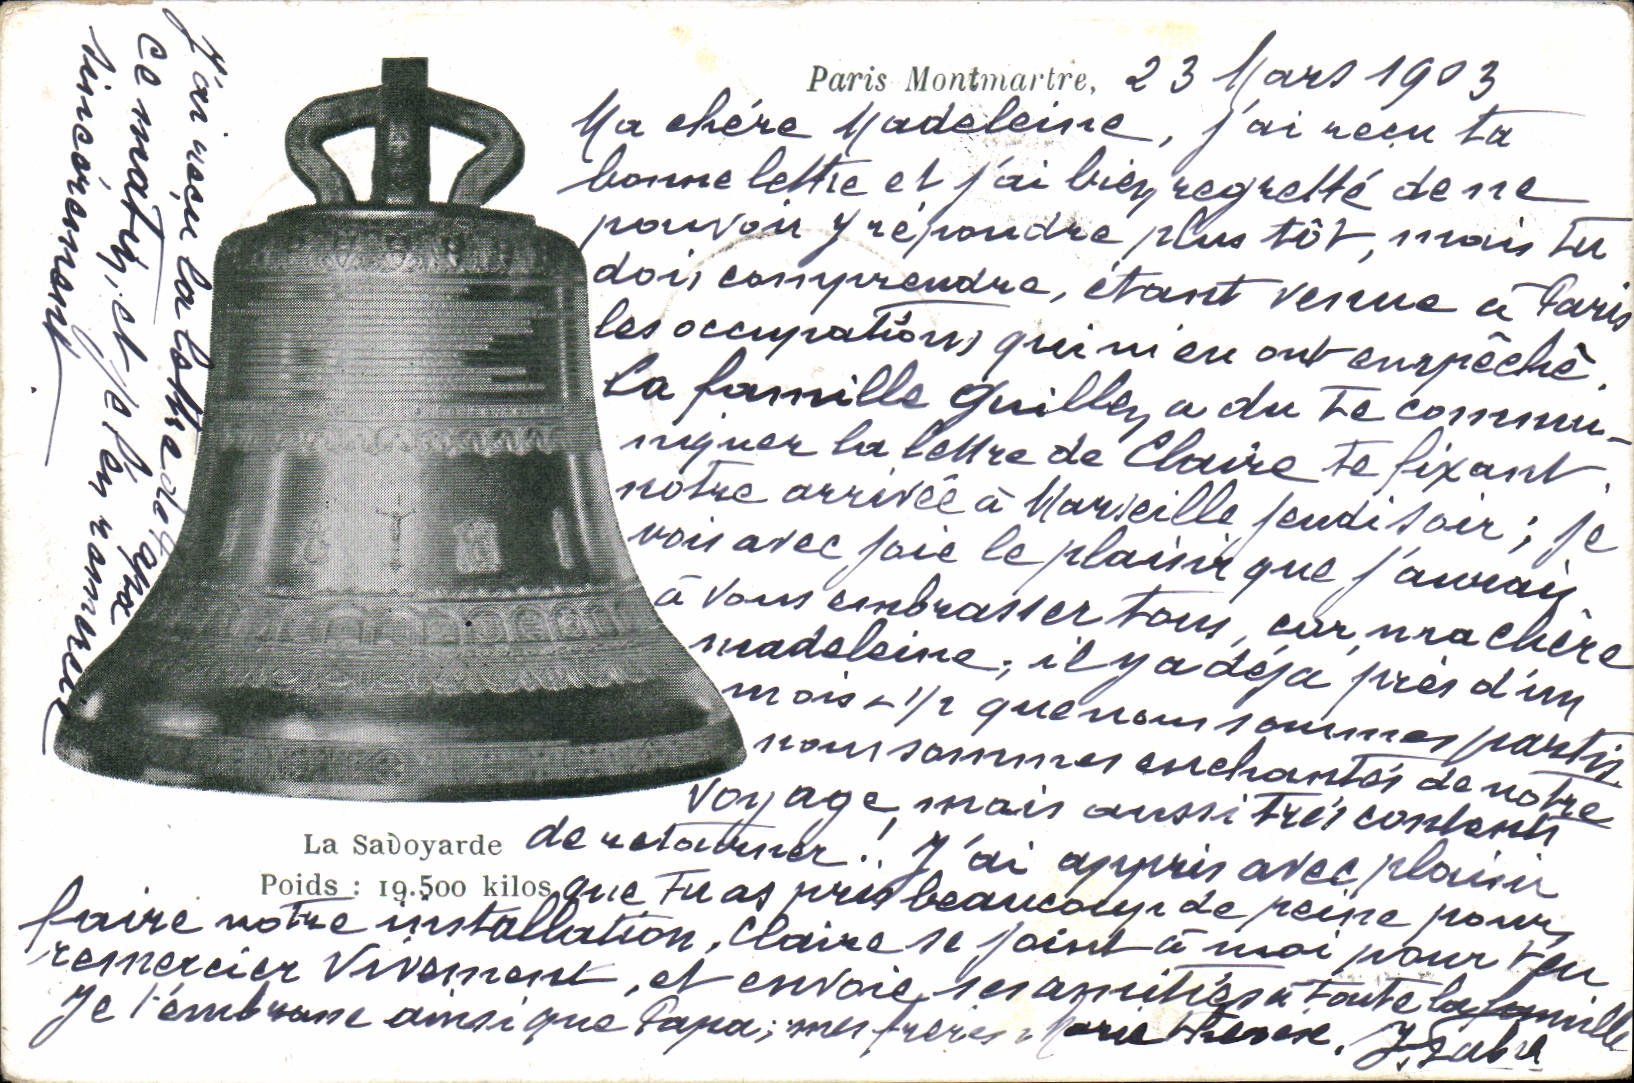 Paris Montmartre, 23 Mars 1903
Ma chère Madeleine, j'ai reçu ta
bonne lettre et j'ai bien regretté de ne
pouvoir y répondre plus tôt, mais tu
dois comprendre, étant venue à Paris
les occupations qui m'en ont empêché.
La famille Guillen a du te commu-
niquer la lettre de Claire te fixant
notre arrivée à Marseille jeudi soir ; je
vois avec joie le plaisir que j'aurai
à vous embrasser tous, car, ma chère
madeleine, il y a déjà près d'un
mois 1/2 que nous sommes partis
nous sommes enchantés de notre
voyage, mais aussi très contents
de retourner ! J'ai appris avec plaisir
que tu as pris beaucoup de peine pour
faire notre installation, Claire se joint à moi pour t'en
remercier vivement, et envoie ses amitiés à toute la famille
Je t'embrasse ainsi que Papa, mes frères Marie Thérèse.
La Savoyarde
Poids : 19.500 kilos
J'ai reçu la lettre de papa
ce matin, et je l'en remercie
sincèrement.